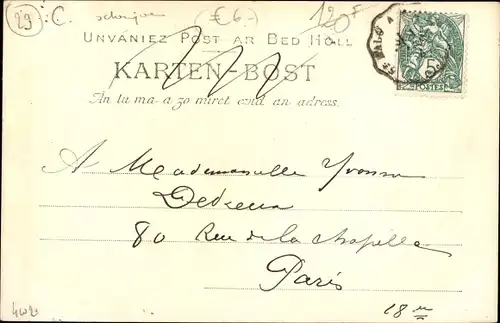 29 C. (€6.) 120F
UNVANIEZ POST AR BED HOLL
KARTEN-BOST
An tu ma a zo miret evid an adress.
5
POSTES
ST MALO A
A Mademoiselle Yvonne
80 Rue de la Chapelle
Paris
18 me